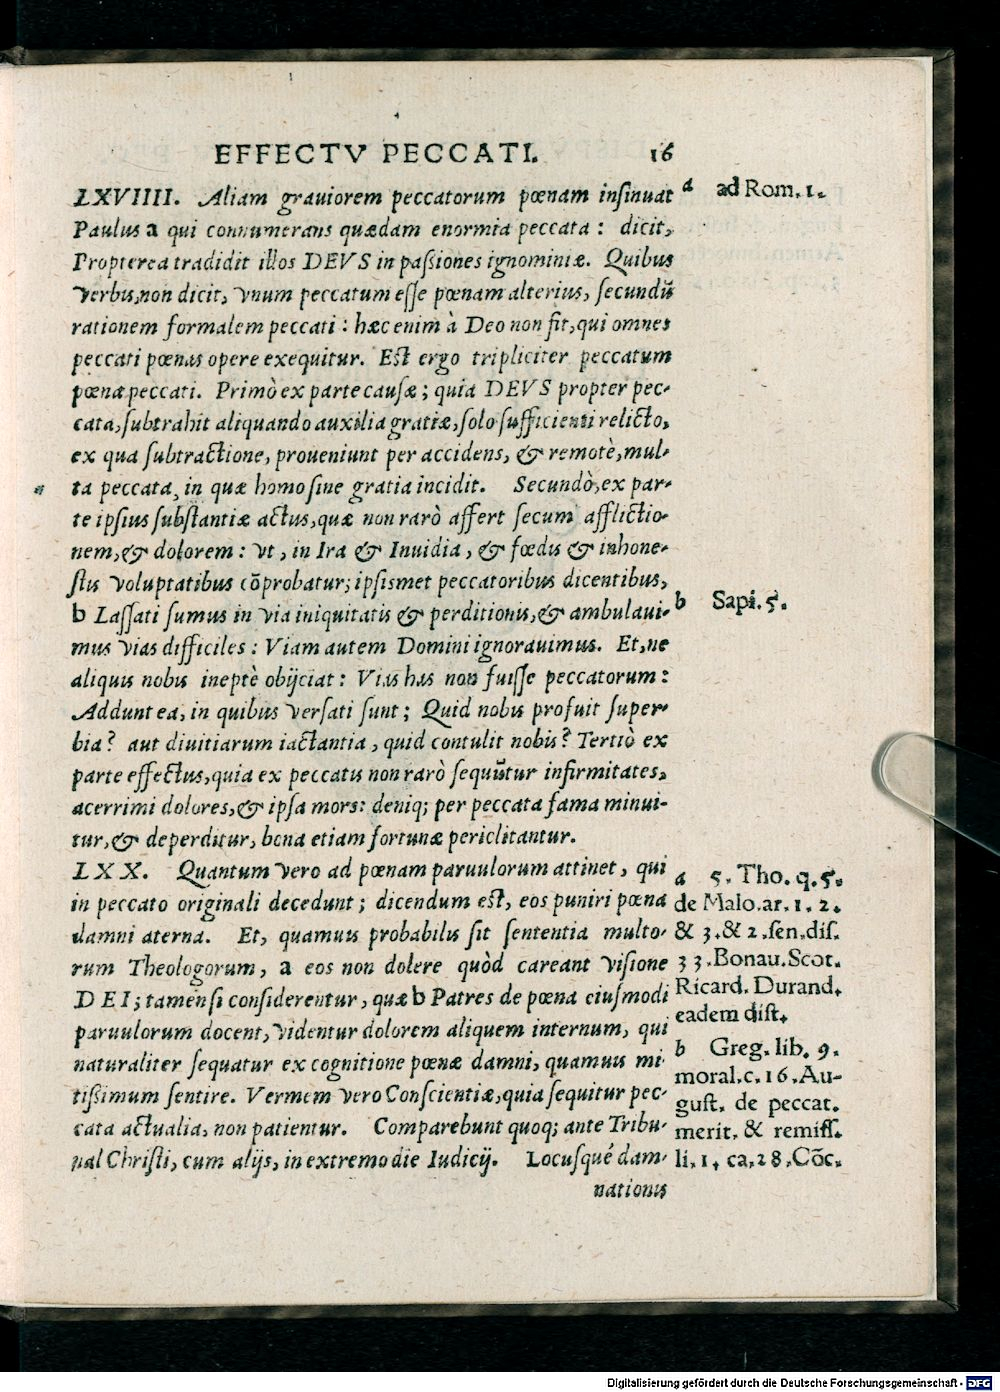 EFFECTV PECCATI. 16
LXVIIII. Aliam grauiorem peccatorum pœnam insinuat
Paulus a qui connumerans quædam enormia peccata: dicit,
Propterea tradidit illos DEVS in passiones ignominiæ. Quibus
verbis, non dicit, vnum peccatum esse pœnam alterius, secundũ
rationem formalem peccati: hæc enim à Deo non fit, qui omnes
peccati pœnas opere exequitur. Est ergo tripliciter peccatum
pœna peccati. Primò ex parte causæ; quia DEVS propter pec-
cata, subtrahit aliquando auxilia gratiæ, solo sufficienti relicto,
ex qua subtractione, proueniunt per accidens, & remotè, mul-
ta peccata, in quæ homo sine gratia incidit. Secundò, ex par-
te ipsius substantiæ actus, quæ non rarò affert secum afflictio-
nem, & dolorem: vt, in Ira & Inuidia, & fœdis & inhone-
stis voluptatibus cõprobatur; ipsismet peccatoribus dicentibus,
b Lassati sumus in via iniquitatis & perditionis, & ambulaui-
mus vias difficiles: Viam autem Domini ignorauimus. Et, ne
aliquis nobis ineptè obijciat: Vias has non fuisse peccatorum:
Addunt ea, in quibus versati sunt; Quid nobis profuit super-
bia? aut diuitiarum iactantia, quid contulit nobis? Tertiò ex
parte effectus, quia ex peccatis non rarò sequũtur infirmitates,
acerrimi dolores, & ipsa mors: deniq; per peccata fama minui-
tur, & deperditur, bona etiam fortunæ periclitantur.
LXX. Quantum vero ad pœnam paruulorum attinet, qui
in peccato originali decedunt; dicendum est, eos puniri pœna
damni aterna. Et, quamuis probabilis sit sententia multo-
rum Theologorum, a eos non dolere quòd careant visione
DEI; tamen si considerentur, quæ b Patres de pœna eiusmodi
paruulorum docent, videntur dolorem aliquem internum, qui
naturaliter sequatur ex cognitione pœnæ damni, quamuis mi-
tissimum sentire. Vermem vero Conscientiæ, quia sequitur pec-
cata actualia, non patientur. Comparebunt quoq; ante Tribu-
nal Christi, cum alijs, in extremo die Iudicij. Locusqué dam-
nationis
a ad Rom. 1.
b Sapi. 5.
a S. Tho. q. 5.
de Malo. ar. 1. 2.
& 3. & 2. sen. dis.
33. Bonau. Scot.
Ricard. Durand.
eadem dist.
b Greg. lib. 9.
moral. c. 16. Au-
gust. de peccat.
merit. & remiss.
li. 1. ca. 28. Cõc.
Digitalisierung gefördert durch die Deutsche Forschungsgemeinschaft - DFG